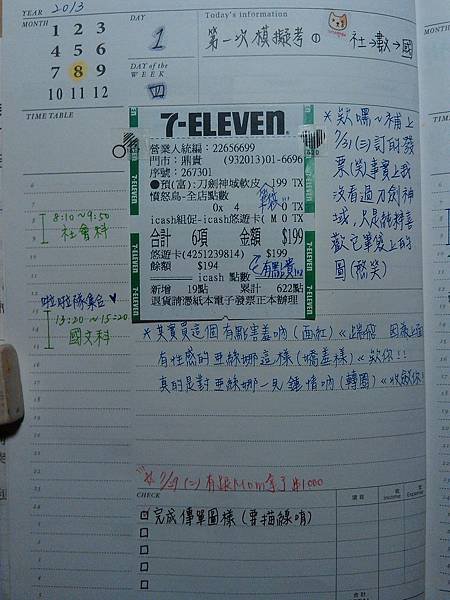 YEAR 2013
MONTH
1 2 3
4 5 6
7 8 9
10 11 12
DAY
1
DAY of the
WEEK
四
Today's information
第一次模擬考の
社→數→國
MONTH
TIME TABLE
8:10~9:50
社會科
啦啦隊集合♥
13:20~15:20
國文科
7-ELEVEN
營業人統編:22656699
門市:鼎貴 (932013)01-6696
序號:267301
●預(富):刀劍神域軟皮 199 TX
憤怒鳥-全店點數
0x 4 0 TX
icash組促-icash悠遊卡( M 0 TX
合計 6項 金額 $199
悠遊卡(4251239814) $199
餘額 $194
icash 點數
新增 19點 累計 622點
退貨請憑紙本電子發票正本辦理
筆袋
有點貴
*欸嘿~補上
7/31(三)訂的發
票(笑)事實上我
沒看過刀劍神
域,只是純粹喜
歡它筆袋上的
圖(憨笑)
*其實買這個有點害羞吶(面紅)
有性感的亞絲娜這樣(嬌羞樣)《欸你!!
真的是對亞絲娜一見鍾情吶(轉圈)
*7/29(二)有跟Mom拿了$1000
CHECK
項目
收 Income
支 Expense
完成傳單圖樣(要描線唷)
合計